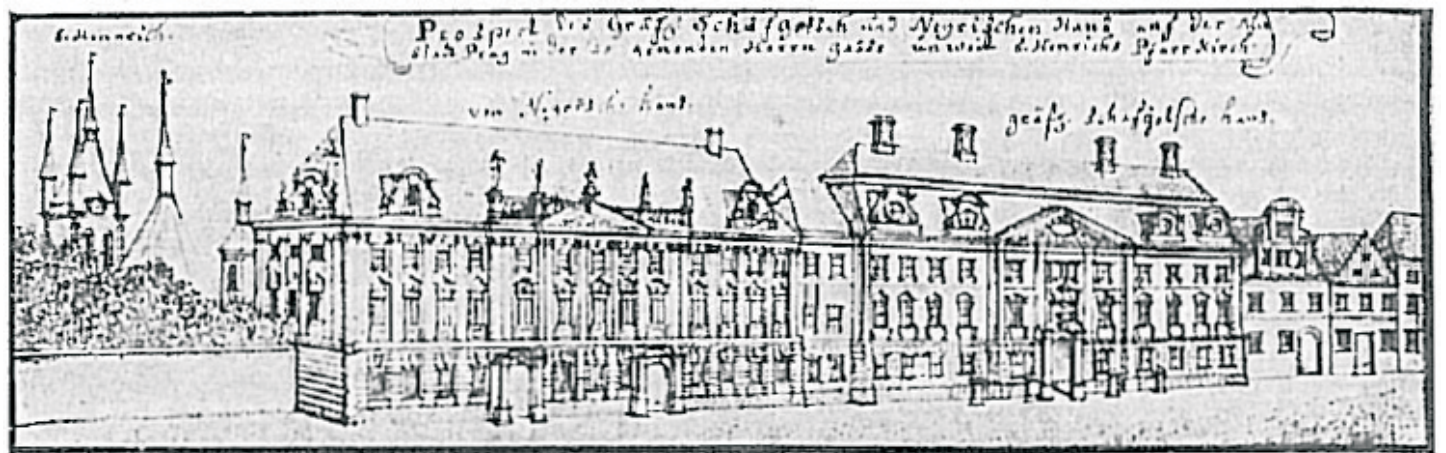 S. Heinrich.
Prospect des Gräfl. Schafgotsch und Neyrischen Haus auf der Neu
stadt Prag in der so genanden Herrn gasse unweit S. Heinrichs Pfarr Kirch.
von haus.
gräfl. Schafgotsche haus.